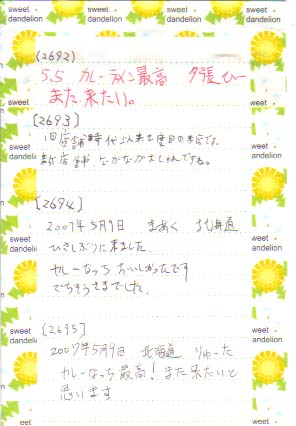 sweet dandelion
sweet dandelion
sweet dandelion
(2692)
5.5 カレーラーメン最高 夕張
また来たい。
[2693]
旧店舗時代以来2度目の来店です。
新店舗、なかなかおしゃれですね。
[2694]
2007年5月9日 まあく 北海道
ひさしぶりに来ました。
カレーなっち おいしかったです
ごちそうさまでした。
[2695]
2007年5月9日 北海道 りゅーた
カレーなっち最高！また来たいと
思います
sweet dandelion
sweet dandelion